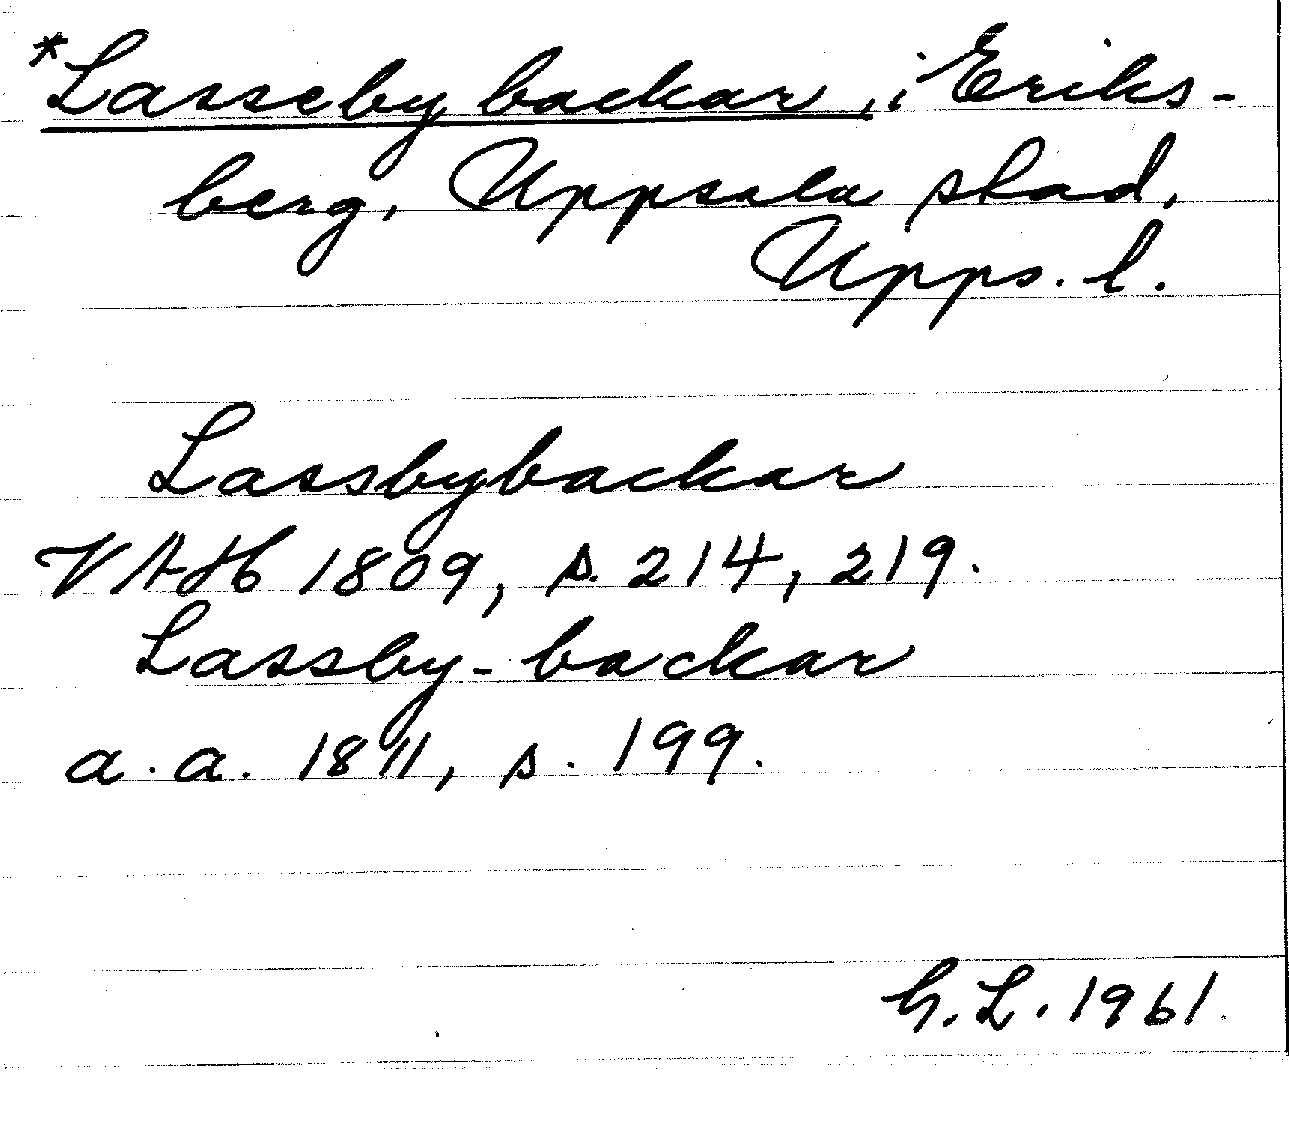 *Lasseby backar, i Eriks-
berg, Uppsala stad,
Upps. l.
Lassbybackar
VAH 1809, s. 214, 219.
Lassby-backar
a. a. 1811, s. 199.
G. L. 1961.